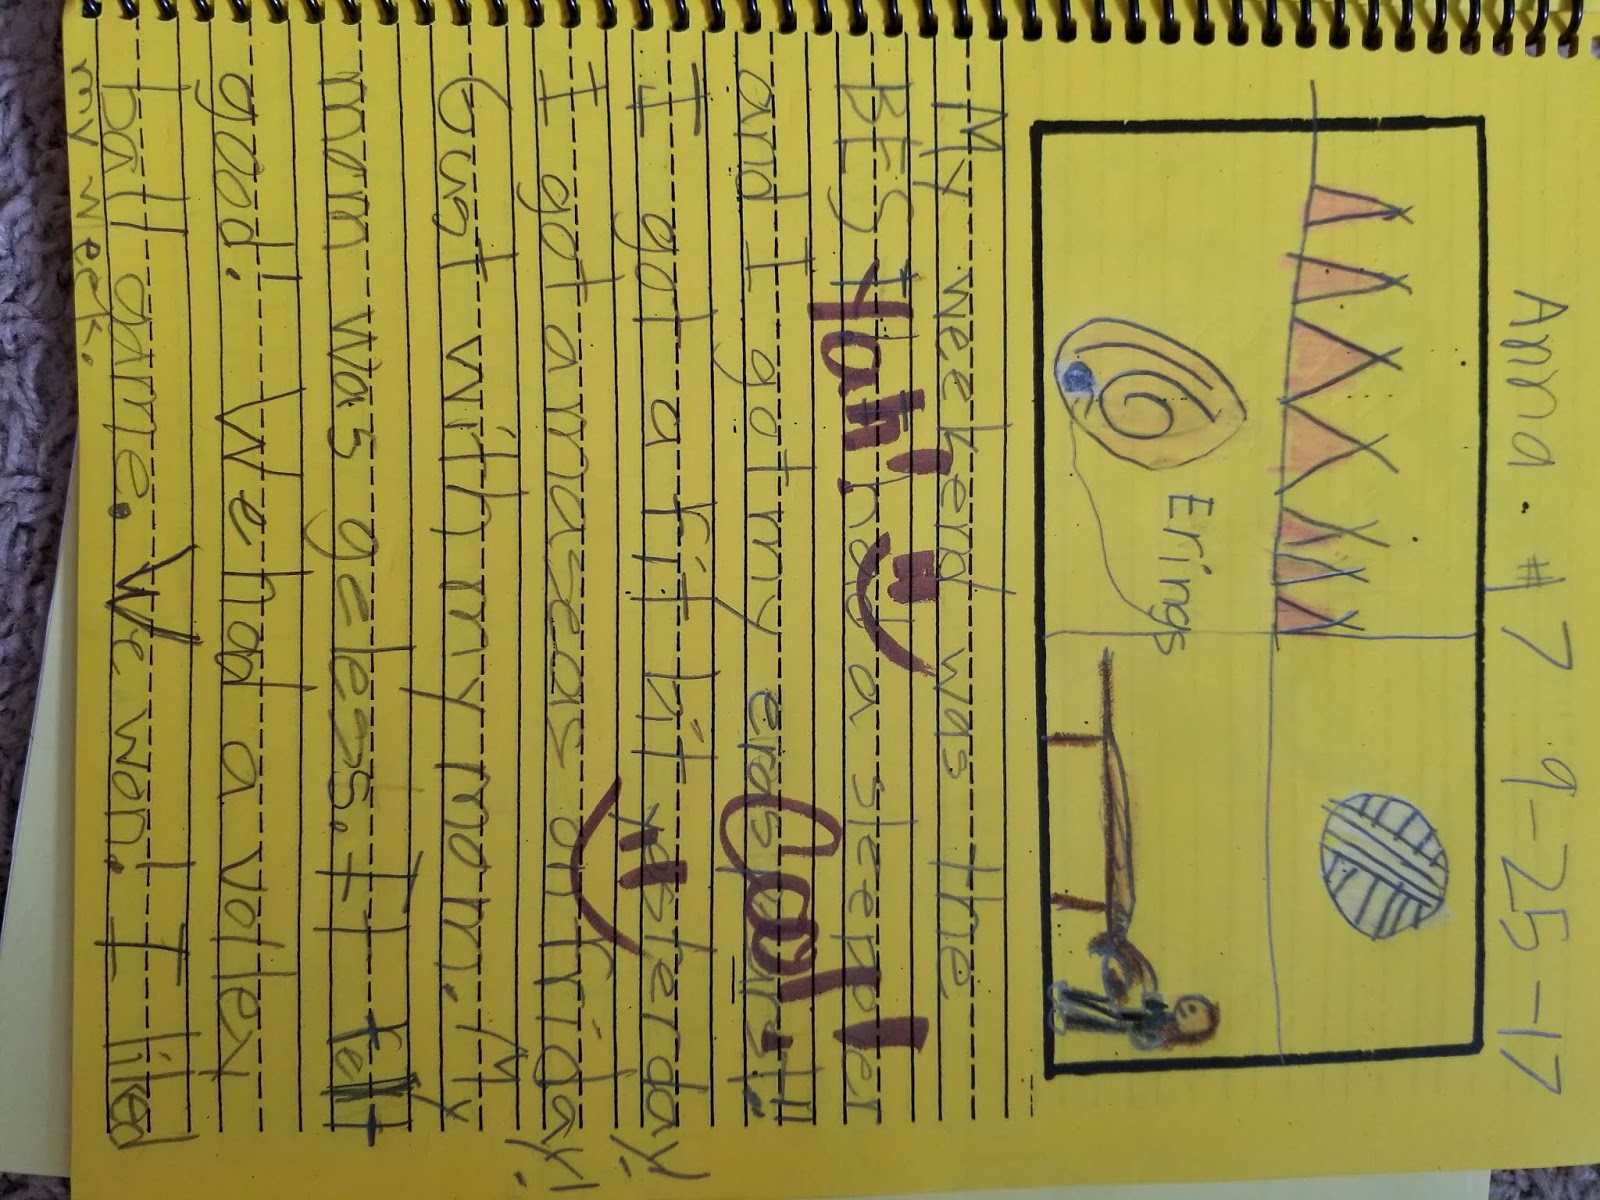 Anna. #7 9-25-17
Erings
My weekend was the
BEST I had a
and I got my eras purst!!
I got a fit bit yesterday!
I got amaseas on friday!
Gust with my mom! My
mom was geless. It felt
good! We had a volley
ball game. We won! I liked
my week.
Yah!
Cool!